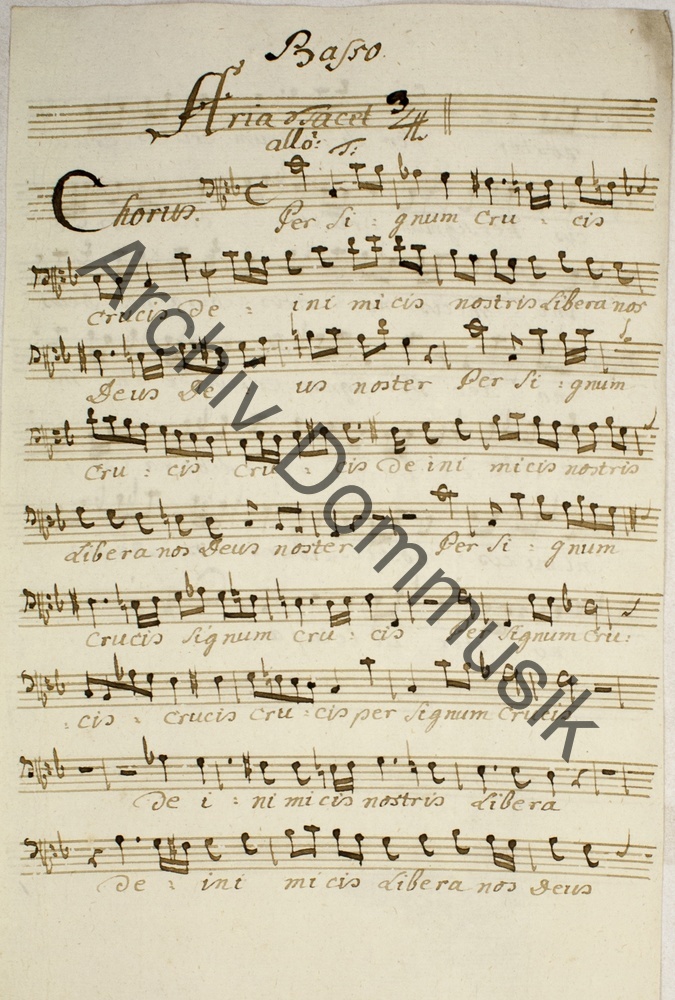 Basso
Aria Tacet 3/4
allo: T:
Chorus. Per Si : gnum Cru : cis
Crucis De : ini mi cis nostris Libera nos
Deus De us noster Per Si : gnum
Cru : cis Cru : cis De ini micis nostris
Libera nos Deus noster Per Si : gnum
Crucis Signum Cru : cis Per Signum Cru :
: cis : Crucis Cru : cis per Signum Crucis
De i : ni mi cis nostris Libera
De : ini mi cis Libera nos Deus
Archiv Dommusik